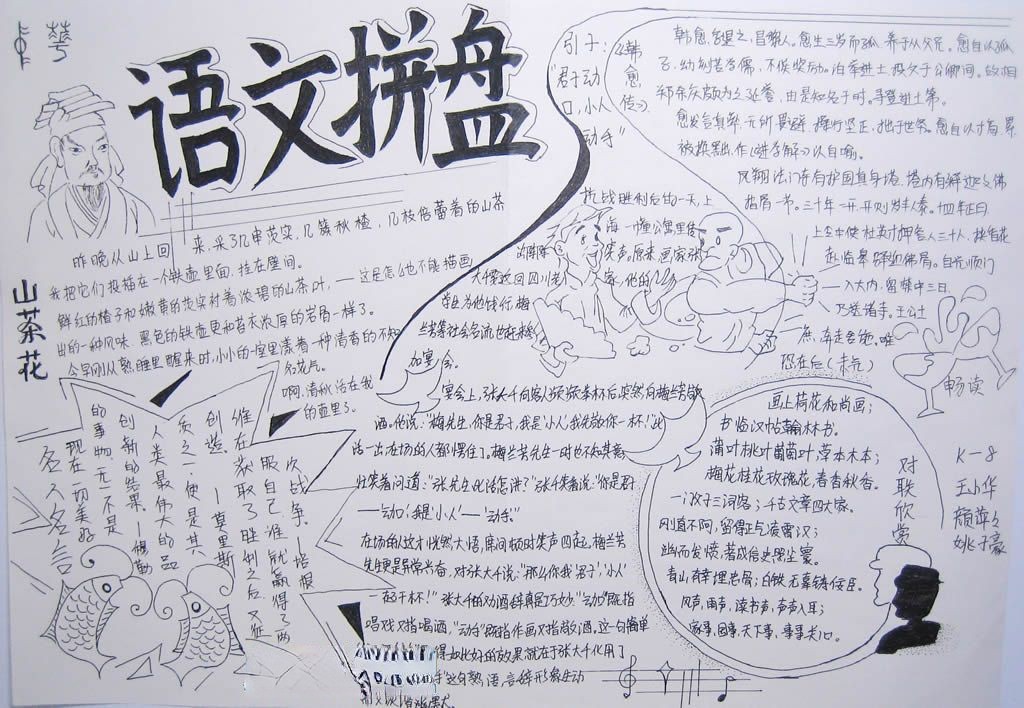 语文拼盘
山茶花
昨晚从山上回来,采了几串茨实,几簇秋楂,几枝倍蕾着的山茶
我把它们投插在一个铁壶里面,挂在壁间。
鲜红的楂子和嫩黄的茨实衬着浓碧的山茶叶,——这是怎么也不能描画
出的一种风味。黑色的铁壶更和苔衣浓厚的岩骨一样了。
今早刚从熟睡里醒来时,小小的室里漾着一种清香的不知
名花气。
啊,清秋活在我
的壶里了。
名人名言
现在一切美好
的事物,无一不是
创新的结果。——穆勒
人类最伟大的品
质之一便是其
创造。——莫里斯
维在获取了胜利之后,又
服自己,谁就赢得了两
次战争。——培根
引子:
“君子动
口,小人
动手”
抗战胜利后的一天,上
海一幢公寓里传
笑声,原来画家张
大千要返回四川老
家,他的
学生为他饯行,梅
兰芳等社会名流也赶来
加宴会。
宴会上,张大千向客人频频举杯后,突然向梅兰芳敬
酒。他说:“梅先生,你是君子,我是小人,我先敬你一杯!”此
话一出,在场的人都愣住了。梅兰芳先生一时也不知其意
忙笑着问道:“张先生此话怎讲?”张大千笑着说:“你是君子
——‘动口’,我是‘小人’——‘动手’。”
在场的人这才恍然大悟,席间顿时笑声四起,梅兰芳
先生更是异常兴奋,对张大千说:“那么你我‘君子’、‘小人’
一起干杯!”张大千的劝酒辞真是巧妙。“动口”既指
唱戏又指喝酒,“动手”既指作画又指敬酒。这一句简单
得如此好的效果,就在于张大千化用了
这句熟语,言辞形象生动
《韩愈传》
韩愈,字退之,昌黎人。愈生三岁而孤,养于从父兄。愈自以孤
子,幼刻苦学儒,不俟奖励。洎举进士,投文于公卿间。故相
郑余庆颇为之延誉,由是知名于时。寻登进士第。
愈发言真率,无所畏避,操行坚正,拙于世务。愈自以才高,累
被摈黜,作《进学解》以自喻。
凤翔法门寺有护国真身塔,塔内有释迦文佛
指骨一节。三十年一开,开则岁丰人泰。十四年正月
上令中使杜英奇押宫人三十人,持香花
赴临皋驿迎佛骨。自光顺门
入大内,留禁中三日,
乃送诸寺。王公士
庶,奔走舍施,唯
恐在后(未完)
畅读
对联欣赏
画上荷花和尚画;
书临汉帖翰林书。
蒲叶桃叶葡萄叶,草本木本;
梅花桂花玫瑰花,春香秋香。
一门父子三词客;千古文章四大家。
刚直不阿,留得正气凌霄汉;
幽而发愤,著成信史照尘寰。
青山有幸埋忠骨;白铁无辜铸佞臣。
风声,雨声,读书声,声声入耳;
家事,国事,天下事,事事关心。
K-8
王小华